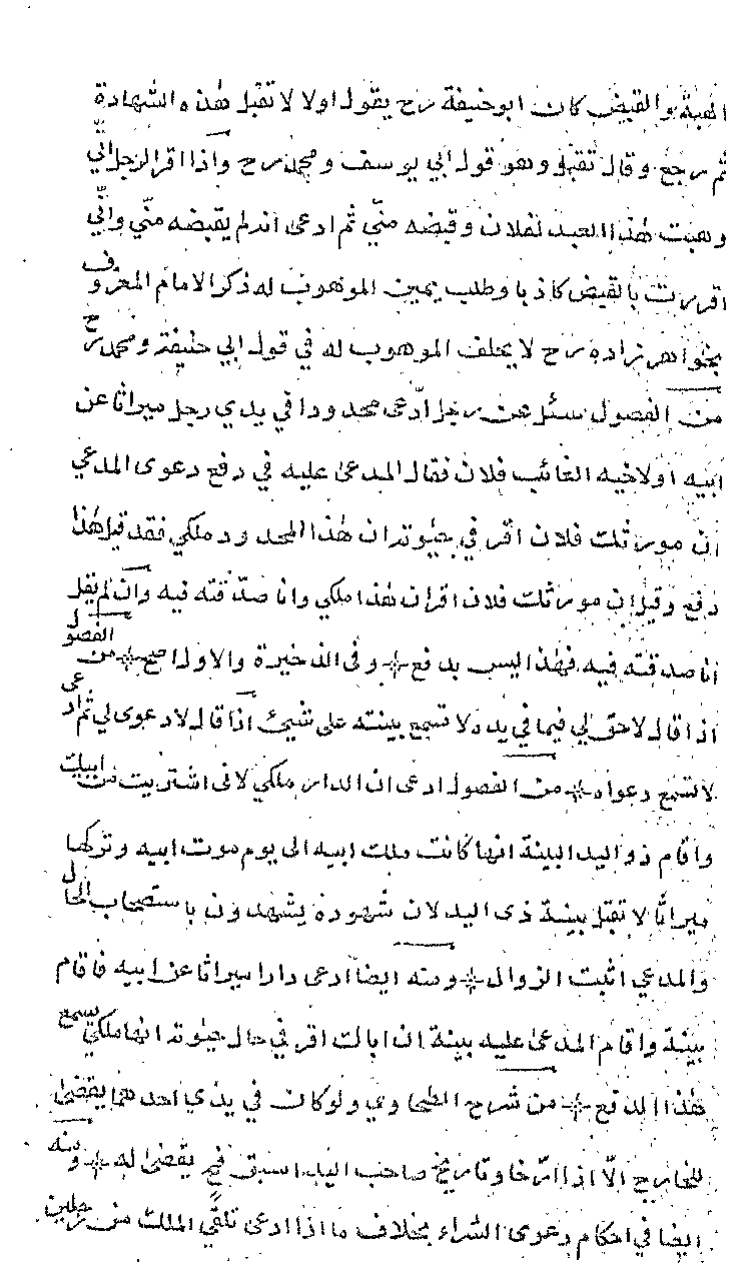 الهبة والقبض كان ابوحنيفة رح يقول اولا لا تقبل هذه الشهادة
ثم رجع وقال تقبل وهو قول ابي يوسف ومحمد رح واذا اقر الرجل اني
وهبت هذا العبد لفلان وقبضه مني ثم ادعى انه لم يقبضه مني واني
اقررت بالقبض كاذبا وطلب يمين الموهوب له ذكر الامام المعروف
بخواهر زاده رح لا يحلف الموهوب له في قول ابي حنيفة ومحمد رح
من الفصول سئل عن رجل ادّعى محدودا في يدي رجل ميراثا عن
ابيه اولاخيه الغائب فلان فقال المدعى عليه في دفع دعوى المدعي
ان مورثك فلان اقر في حيوته ان هذا المحدود ملكي فقد قيل هذا
دفع وقيل ان مورثك فلان اقران هذا ملكي وانا صدّقته فيه وان لم يقل
انا صدقته فيه فهذا ليس بدفع * وفي الذخيرة والاول اصح * من الفصول
اذا قال لا حق لي فيما في يده لا تسمع بينته على شيئ اذا قال لا دعوى لي ثم ادعى
لا تسمع دعواه * من الفصول ادعى ان الدار ملكي لاني اشتريت من ابيك
واقام ذو اليد البينة انها كانت ملك ابيه الى يوم موت ابيه وتركها
ميراثا لا تقبل بينة ذى اليد لان شهوده يشهدون باستصحاب الحال
والمدعي اثبت الزوال * ومنه ايضا ادعى دارا ميراثا عن ابيه فاقام
بينة واقام المدعى عليه بينة ان اباك اقر في حال حيوته انها ملكي يسمع
هذا الدفع * من شرح الطحاوي ولو كان في يدي احدهما يقضى
للخارج الّا اذا ارّخا وتاريخ صاحب اليد اسبق فح يقضى له * ومنه
ايضا في احكام دعوى الشراء بخلاف ما اذا ادعى تلقّي الملك من رجلين